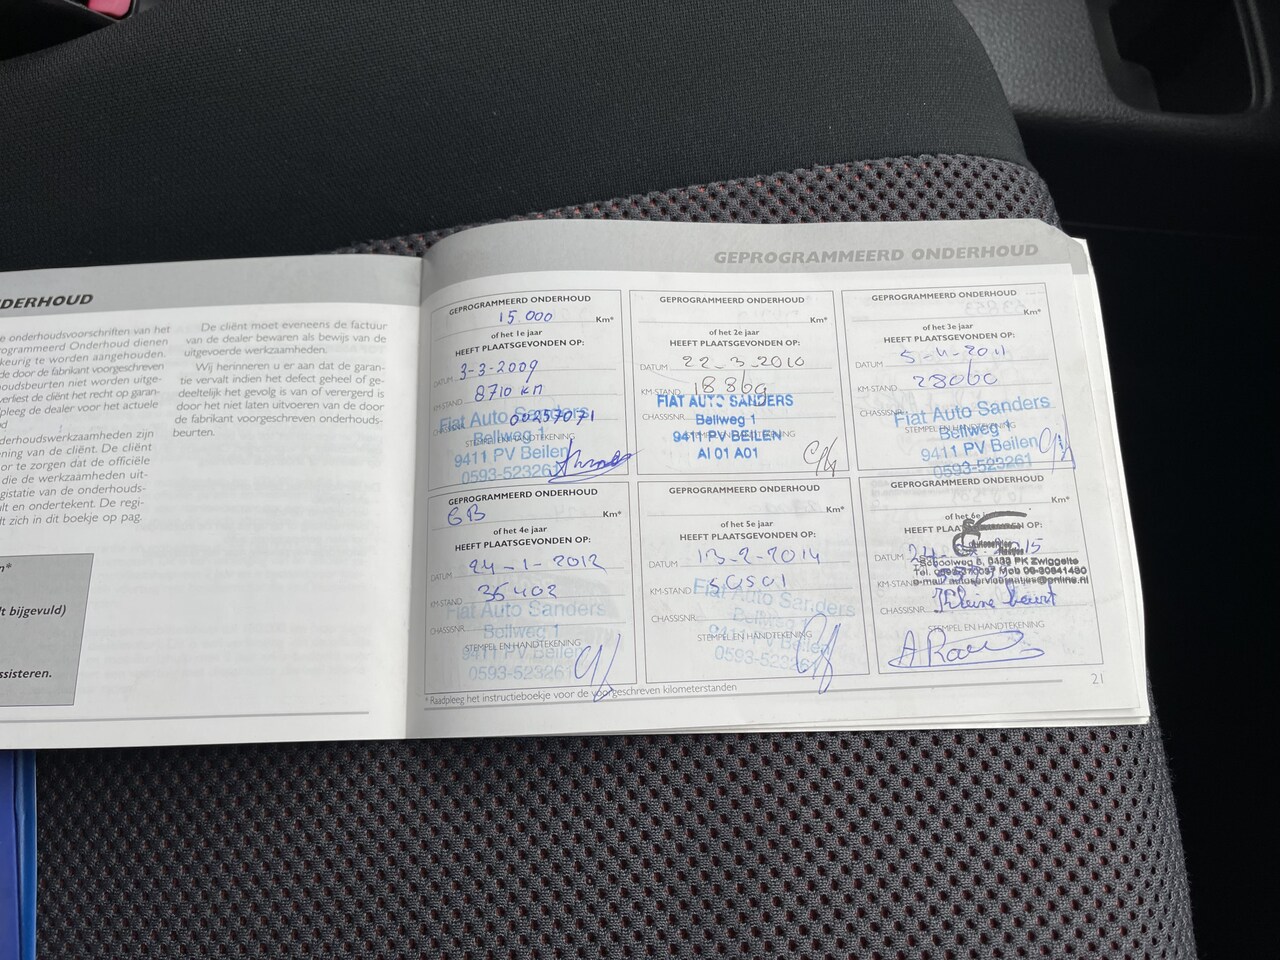 DERHOUD
e onderhoudsvoorschriften van het
rogrammeerd Onderhoud dienen
keurig te worden aangehouden.
de door de fabrikant voorgeschreven
houdsbeurten niet worden uitge-
verliest de cliënt het recht op garan-
pleeg de dealer voor het actuele
d
derhoudswerkzaamheden zijn
ning van de cliënt. De cliënt
or te zorgen dat de officiële
die de werkzaamheden uit-
gistatie van de onderhouds-
lt en ondertekent. De regi-
dt zich in dit boekje op pag.
De cliënt moet eveneens de factuur
van de dealer bewaren als bewijs van de
uitgevoerde werkzaamheden.
Wij herinneren u er aan dat de garan-
tie vervalt indien het defect geheel of ge-
deeltelijk het gevolg is van of verergerd is
door het niet laten uitvoeren van de door
de fabrikant voorgeschreven onderhouds-
beurten.
n*
lt bijgevuld)
ssisteren.
GEPROGRAMMEERD ONDERHOUD
GEPROGRAMMEERD ONDERHOUD
15.000 Km*
of het 1e jaar
HEEFT PLAATSGEVONDEN OP:
DATUM 3-3-2009
KM-STAND 8710 km
CHASSISNR. 00257071
STEMPEL EN HANDTEKENING
Fiat Auto Sanders
Beilweg 1
9411 PV Beilen
0593-523261
GEPROGRAMMEERD ONDERHOUD
Km*
of het 2e jaar
HEEFT PLAATSGEVONDEN OP:
DATUM 22-3-2010
KM-STAND 18869
CHASSISNR.
STEMPEL EN HANDTEKENING
FIAT AUTO SANDERS
Beilweg 1
9411 PV BEILEN
AI 01 A01
GEPROGRAMMEERD ONDERHOUD
Km*
of het 3e jaar
HEEFT PLAATSGEVONDEN OP:
DATUM
KM-STAND 28060
CHASSISNR.
STEMPEL EN HANDTEKENING
Fiat Auto Sanders
Beilweg 1
9411 PV Beilen
0593-523261
GEPROGRAMMEERD ONDERHOUD
GB Km*
of het 4e jaar
HEEFT PLAATSGEVONDEN OP:
DATUM 24-1-2012
KM-STAND 35402
CHASSISNR.
STEMPEL EN HANDTEKENING
Fiat Auto Sanders
Beilweg 1
9411 PV Beilen
0593-523261
GEPROGRAMMEERD ONDERHOUD
Km*
of het 5e jaar
HEEFT PLAATSGEVONDEN OP:
DATUM 13-2-2014
KM-STAND
CHASSISNR.
STEMPEL EN HANDTEKENING
Fiat Auto Sanders
Beilweg 1
9411 PV Beilen
0593-523261
GEPROGRAMMEERD ONDERHOUD
Km*
of het 6e
HEEFT PLAATSGEVONDEN OP:
DATUM
KM-STAND
CHASSISNR. Kleine beurt
STEMPEL EN HANDTEKENING
Schoolweg 5, PK Zwiggelte
* Raadpleeg het instructieboekje voor de voorgeschreven kilometerstanden
21